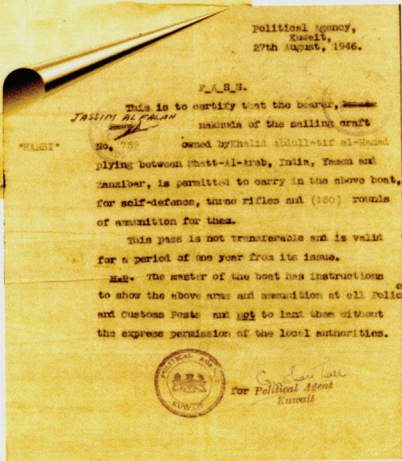 Political Agency,
Kuwait,
27th August, 1946.
P_A_S_S.
This is to certify that the bearer,
JASSIM ALFALAH
nakhuda of the sailing craft
"HARBI" No. 752 owned by Khalid Abdullatif al-Hamad
plying between Shatt-Al-Arab, India, Yemen and
Zanzibar, is permitted to carry in the above boat,
for self-defence, three rifles and (150) rounds
of ammunition for them.
This pass is not transferable and is valid
for a period of one year from its issue.
N.B. The master of the boat has instructions
to show the above arms and ammunition at all Polic
e
and Customs Posts and not to land them without
the express permission of the local authorities.
POLITICAL AGENCY
KUWAIT
for Political Agent
Kuwait